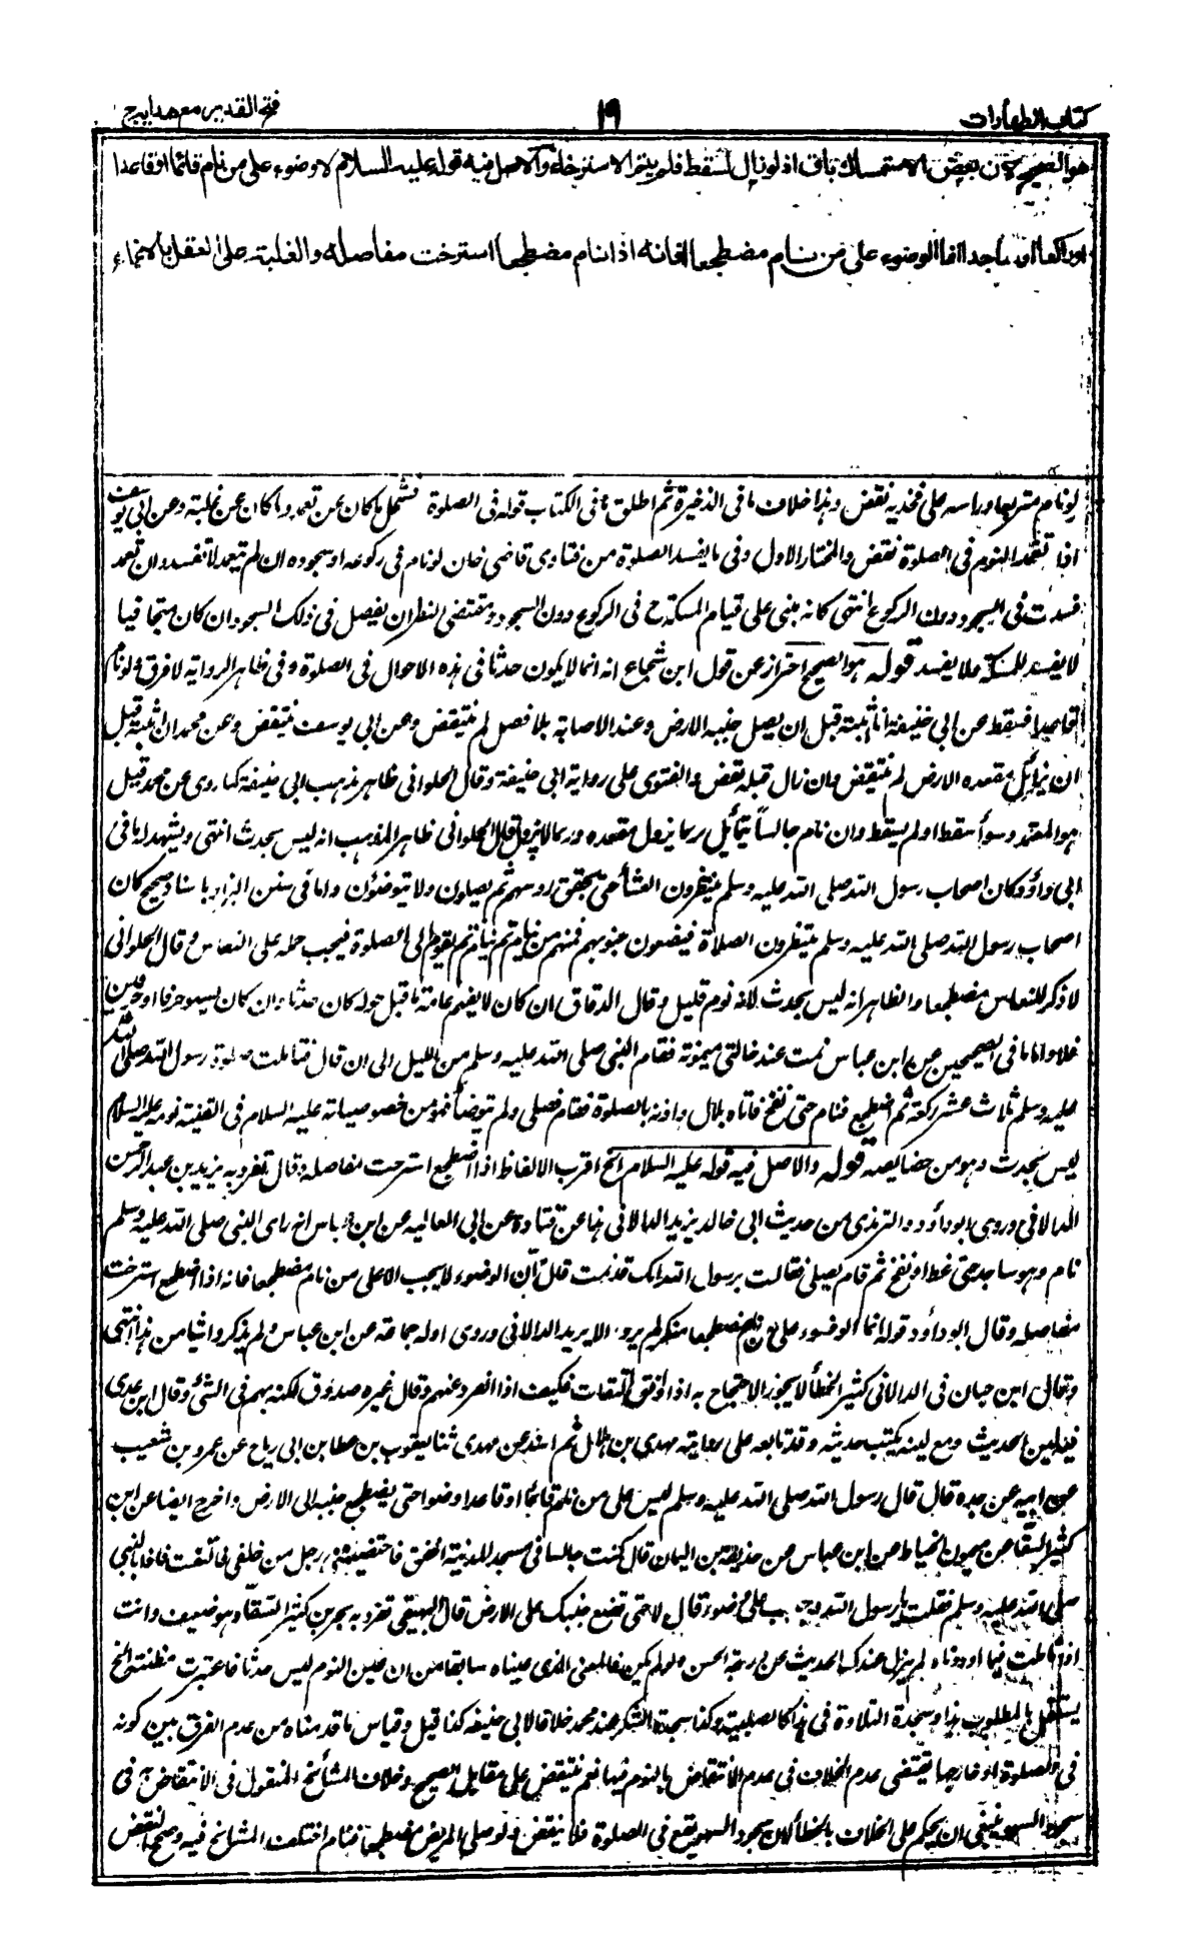 كتاب الطهارات
١٩
فتح القدير مع هدايه ج
هو الصحيح لان بعض الاستمساك باق اذ لو زال لسقط فلم يتم الاسترخاء والاصل فيه قوله عليه السلام لا وضوء على من نام قائما او قاعدا
او راكعا او ساجدا انما الوضوء على من نام مضطجعا فانه اذا نام مضطجعا استرخت مفاصله والغلبة على العقل بالاغماء
لو نام متربعا وراسه على فخذيه نقض وهذا خلاف ما فى الذخيرة ثم اطلق فى الكتاب قوله فى الصلوة فشمل ما كان عن تعمد وما كان عن غلبة وعن ابى يوسف
اذا تعمد النوم فى الصلوة نقض والمختار الاول وفى ما يفسد الصلوة من فتاوى قاضى خان لو نام فى ركوعه او سجوده ان لم يتعمد لا تفسد وان تعمد
فسدت فى السجود دون الركوع انتهى كانه مبنى على قيام المسكة ح فى الركوع دون السجود ومقتضى النظر ان يفصل فى ذلك السجود ان كان متجافيا
لا يفسد للمسكة والا يفسد قوله هو الصحيح احتراز عن قول ابن شجاع انه انما لا يكون حدثا فى هذه الاحوال فى الصلوة وفى ظاهر الرواية لا فرق ولو نام
قاعدا فسقط عن ابى حنيفة ان انتبه قبل ان يصل جنبه الارض وعند الاصابة بلا فصل لم ينتقض وعن ابى يوسف ينتقض وعن محمد ان انتبه قبل
ان يزايل مقعده الارض لم ينتقض وان زال قبله نقض والفتوى على رواية ابى حنيفة وقال الحلوانى ظاهر مذهب ابى حنيفة كما روى عن محمد قيل
هو المعتمد وسواء سقط او لم يسقط وان نام جالسا يتمايل ربما يزول مقعده وربما لا يزول قال الحلوانى ظاهر المذهب انه ليس بحدث انتهى ويشهد له ما فى
ابى داؤد كان اصحاب رسول الله صلى الله عليه وسلم ينتظرون العشاء حتى تخفق رؤسهم ثم يصلون ولا يتوضؤن واما فى سنن البزار باسناد صحيح كان
اصحاب رسول الله صلى الله عليه وسلم ينتظرون الصلاة فيضعون جنوبهم فمنهم من ينام ثم يقوم الى الصلوة فيجب حمله على النعاس وقال الحلوانى
لا ذكر للنعاس مضطجعا والظاهر انه ليس بحدث لانه نوم قليل وقال الدقاق ان كان لا يفهم عامة ما قيل حوله كان حدثا وان كان يسهو حرفا او حرفين
فلا واما ما فى الصحيحين عن ابن عباس نمت عند خالتى ميمونة فقام النبى صلى الله عليه وسلم من الليل الى ان قال فتمامت صلوة رسول الله صلى الله
عليه وسلم ثلاث عشر ركعة ثم اضطجع فنام حتى نفخ فاتاه بلال واذنه بالصلوة فقام فصلى ولم يتوضأ فهو من خصوصياته عليه السلام فى القنية نومه عليه السلام
ليس بحدث وهو من خصايصه قوله والاصل فيه قوله عليه السلام الخ اقرب الالفاظ اذا اضطجع استرخت مفاصله وقال تفرد به يزيد بن عبد الرحمن
الدالانى وروى ابو داؤد والترمذى من حديث ابى خالد يزيد الدالانى هذا عن قتادة عن ابى العاليه عن ابن عباس انه راى النبى صلى الله عليه وسلم
نام وهو ساجد حتى غط او نفخ ثم قام يصلى فقالت يرسول الله انك قد نمت قال ان الوضوء لا يجب الا على من نام مضطجعا فانه اذا اضطجع استرخت
مفاصله وقال ابو داؤد قوله انما الوضوء على من نام مضطجعا منكر لم يروه الا يزيد الدالانى وروى اوله جماعة عن ابن عباس ولم يذكروا شيئا من هذا انتهى
وقال ابن حبان فى الدالانى كثير الخطأ لا يجوز الاحتجاج به اذا وافق الثقات فكيف اذا انفرد عنهم وقال غيره صدوق لكنه يهم فى الشئ وقال ابن عدى
فيه لين الحديث ومع لينه يكتب حديثه وقد تابعه على روايته مهدى بن هلال ثم اسند عن مهدى ثنا يعقوب بن عطا بن ابى رباح عن عمرو بن شعيب
عن ابيه عن جده قال قال رسول الله صلى الله عليه وسلم ليس على من نام قائما او قاعدا وضوء حتى يضطجع جنبه الى الارض واخرج ايضا عن ابن
كثير السقا عن ميمون الخياط عن ابن عباس عن حذيفة بن اليمان قال كنت جالسا فى مسجد المدينة اخفق فاحتضننى رجل من خلفى فالتفت فاذا بالنبى
صلى الله عليه وسلم فقلت يا رسول الله وجب على وضوء قال لا حتى تضع جنبك على الارض قال البيهقى تفرد به بحر بن كنيز السقاء وهو ضعيف وانت
اذا تاملت فيما اوردناه لم ينزل عندك الحديث عن درجة الحسن ولو لم يكن فالمعنى الذى عيناه سابقا من ان عين النوم ليس حدثا فاعتبرت مظنته الخ
يستقل بالمطلوب هذا وسجدة التلاوة فى هذا كالصلبية وكذا سجدة الشكر عند محمد خلافا لابى حنيفه كذا قيل وقياس ما قدمناه من عدم الفرق بين كونه
فى الصلوة او خارجها يقتضى عدم الخلاف فى عدم الانتقاض بالنوم فيها نعم ينتقض على مقابل الصحيح وخلاف المشائخ المنقول فى الانتقاض فى
سجود السهو ينبغى ان يحكم على الخلاف بالخطأ لان سجود السهو يقع فى الصلوة فلا ينتقض ولو صلى المريض مضطجعا فنام اختلف المشائخ فيه وصح النقض